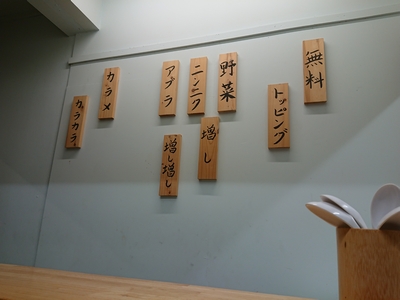 無料
トッピング
野菜
ニンニク
アブラ
増し
増し増し。
カラメ
カラカラ。